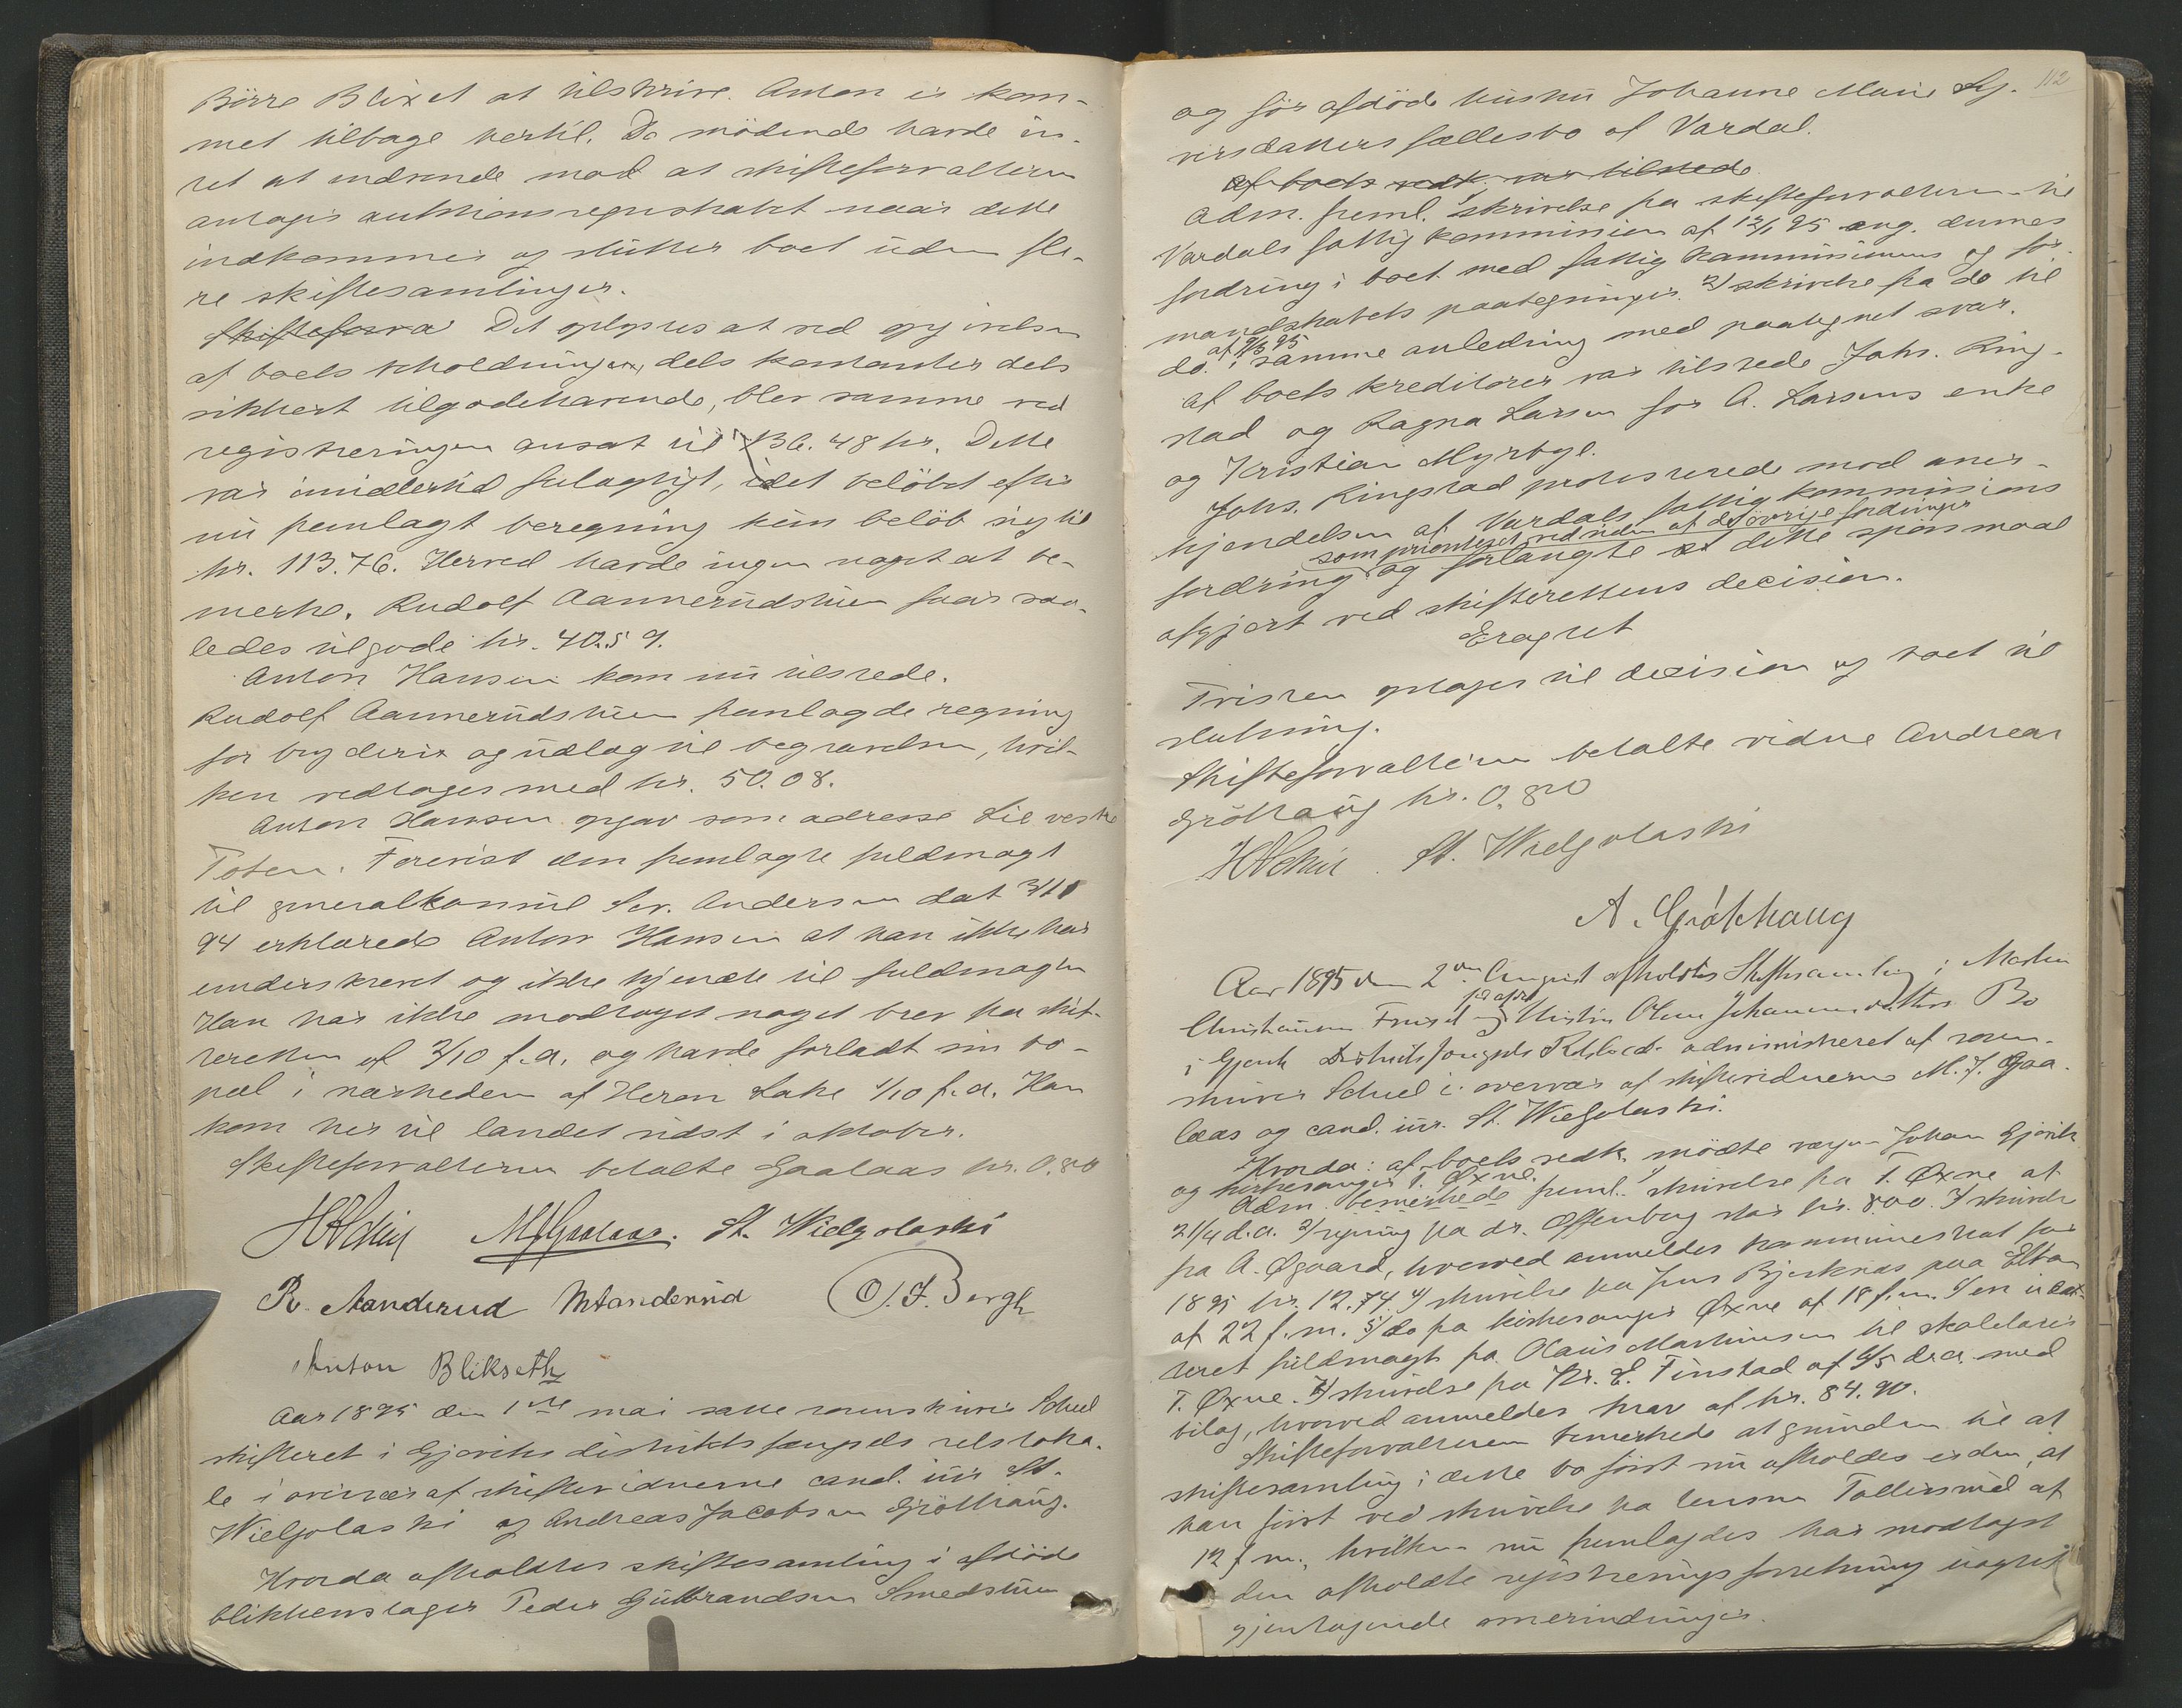 Börre Blixet at tilskrive. Anton er kom-
met tilbage hertil. De mödende havde in-
tet at indvende mod at skifteforvalteren
antager auktionsregnskabet naar dette
indkommer og slutter boet uden fle-
re skiftesamlinger.
Skifteforva Det oplystes at ved opgivelsen
af boets beholdninger, dels kontanter dels
sikkert tilgodehavende, blev samme ved
registreringen ansat til 136.48 kr. Dette
var imidlertid feilagtigt, idet belöbet efter
nu fremlagt beregning kun belöb sig til
kr. 113.76. Herved havde ingen noget at be-
merke. Rudolf Aannerudstuen faar saa-
ledes tilgode kr. 40.59.
Anton Hansen kom nu tilstede.
Rudolf Aannerudstuen fremlagde regning
for bryderi og udlæg til begravelsen, hvil-
ken vedtoges med kr. 50.08.
Anton Hansen opgav som adresse Lie vestre
Toten. Forevist den fremlagte fuldmagt
til generalkonsul Sev. Andersen dat 3/10
94 erklærede Anton Hansen at han ikke har
underskrevet og ikke kjendte til fuldmagten
Han har ikke modtaget noget brev fra skif-
teretten af 2/10 f.a. og havde forladt sin bo-
pæl i nærheden af Heron Lake 1/10 f.a. Han
kom her til landet sidst i oktober.
Skifteforvalteren betalte Gaalaas kr. 0.80
HSchie MJGaalaas. St. Wielgolaski
R. Aanderud MAanderud O. F. Bergh
Anton Blikseth
Aar 1895 den 1ste mai satte sorenskriver Schie
skifteret i Gjöviks distriktsfængsels retsloka-
le i overvær af skiftevidnerne cand. jur St.
Wielgolaski og Andreas Jacobsen Gröthaug.
Hvorda afholdtes skiftesamling i afdöde
blikkenslager Peder Gulbrandsen Smedstuen
112
og för afdöde hustru Johanne Marie Sy-
versdatters fællesbo af Vardal.
Af boets vedk. var tilstede
Adm. freml. 1/ skrivelse fra skifteforvalteren til
Vardals fattigkommission af 12/1 95 ang. dennes
fordring i boet med fattigkommissionens og for-
mandskabets paategninger. 2/ skrivelse fra do til
af 9/3 95
do. i samme anledning med paategnet svar.
Af boets kreditorer var tilstede Johs. Ring-
stad og Ragna Larsen for A. Larsens enke
og Kristian Myrbyl.
Johs. Ringstad protesterede mod aner-
kjendelsen af Vardals fattigkommissions
som prioriteret ved siden af de övrige fordringer
fordring og forlangte at dette spörsmaal
afgjort ved skifterettens decision.
Eragtet
Tvisten optages til decision og boet til
slutning.
Skifteforvalteren betalte vidne Andreas
Gröthaug kr. 0.80
HSchie St. Wielgolaski
A. Gröthaug
Aar 1895 den 2den August afholdtes Skiftesamling i Martin
før afdöde
Christiansen Fruset og Hustru Oline Johannesdatters Bo
i Gjøvik Distriktsfængsels Retslocale administreret af soren-
skriver Schie i overvær af skiftevidnerne M. J. Gaa-
laas og cand. jur. St. Wielgolaski.
Hvorda: af boets vedk. mödte værgen Johan Gjövik
og kirkesanger T. Øxne.
Adm. bemerkede freml. 1/ skrivelse fra T. Øxne af
21/4 d.a. 2/ regning fra dr. Offenberg stor kr. 8.00. 3/ skrivelse
fra A. Øgaard, hvorved anmeldes kommuneskat for
1895 kr. 12.74. 4/ skrivelse fra Jens Bjerknæs paa Elton
af 22 f.m. 5/ do fra kirkesanger Øxne af 18 f.m. 6/ en udat-
teret fuldmagt fra Olaus Martinsen til skolelærer
T. Øxne. 7/ skrivelse fra Kr. E. Finstad af 6/5 d.a. med
bilag, hvorved anmeldes krav af kr. 84.90.
Skifteforvalteren bemerkede at grunden til at
skiftesamling i dette bo först nu afholdes er den, at
han först ved skrivelse fra lensm Tollersrud af
12 f.m., hvilken nu fremlagdes har modtaget
den afholdte registreringsforretning uagtet
gjentagende omerindringer.